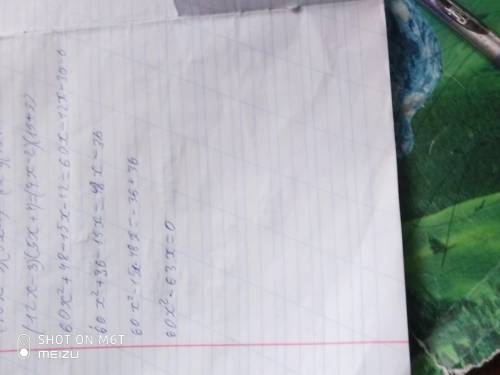 (12x-3)(5x+4)=(4x-2)(15x+3)
60x²+48-15x-12=60x-12x-30-6
60x²+36-15x=48x-36
60x²-15x-48x=-36+36
60x²-63x=0
SHOT ON M6T
MEIZU